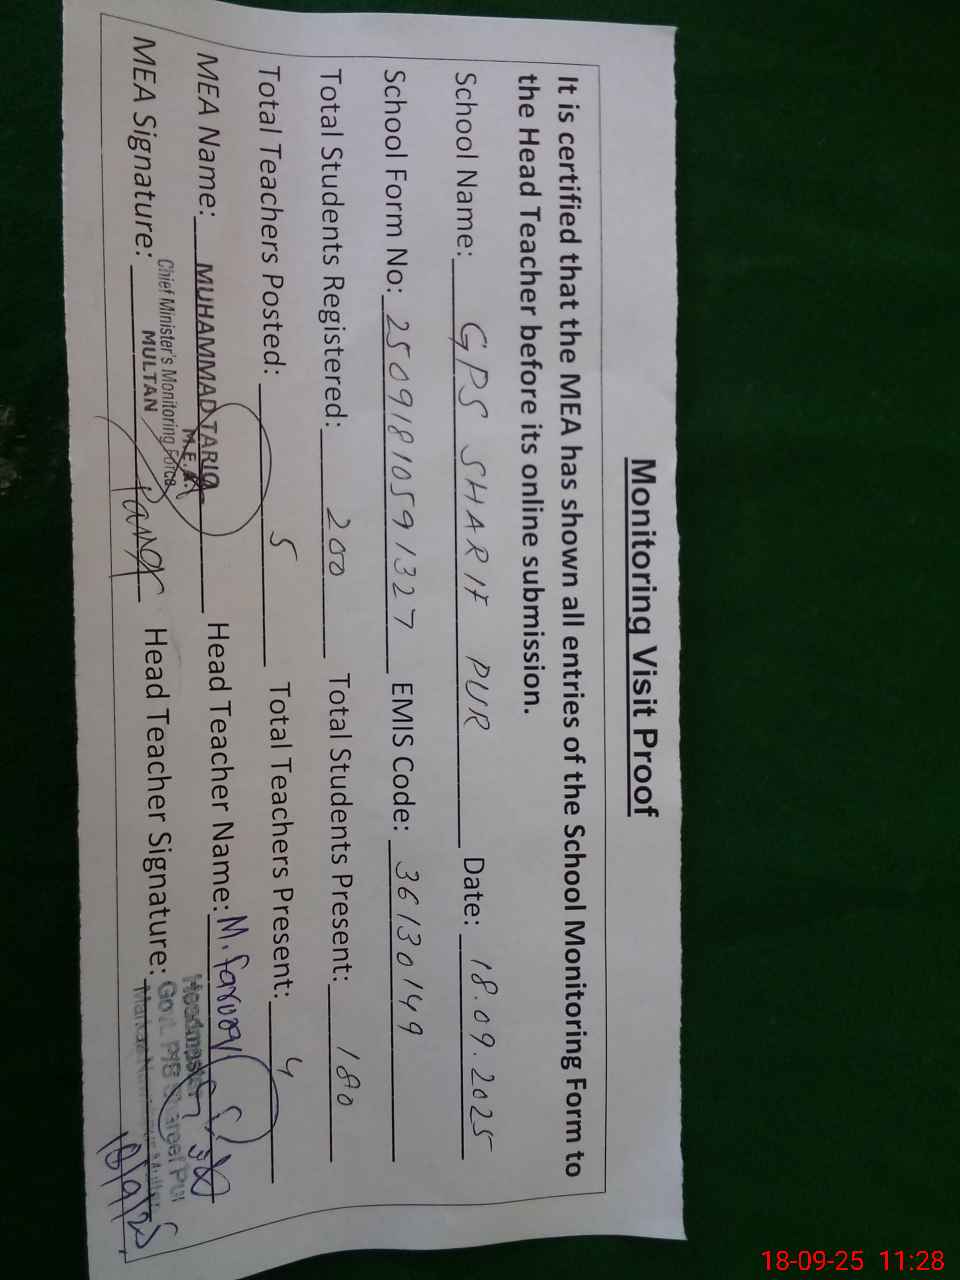 Monitoring Visit Proof
It is certified that the MEA has shown all entries of the School Monitoring Form to
the Head Teacher before its online submission.
School Name: GPS SHARIF PUR Date: 18.09.2025
School Form No: 25091810591327 EMIS Code: 36130149
Total Students Registered: 200 Total Students Present: 180
Total Teachers Posted: 5 Total Teachers Present: 4
MEA Name: MUHAMMAD TARIQ Head Teacher Name: M. Farooq
M.E.A.
Chief Minister's Monitoring Force
MULTAN
MEA Signature: Head Teacher Signature:
Headmaster
Govt. P/B Shareef Pur
18/9/25
18-09-25 11:28